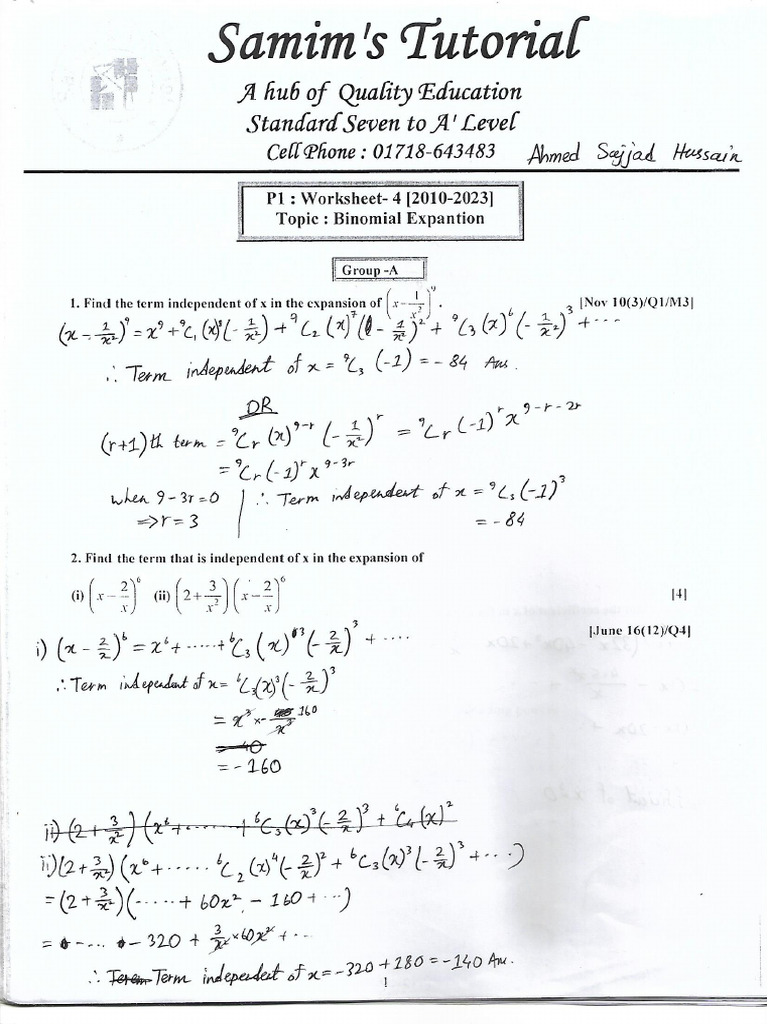 Samim's Tutorial
A hub of Quality Education
Standard Seven to A' Level
Cell Phone : 01718-643483 Ahmed Sajjad Hussain
P1 : Worksheet- 4 [2010-2023]
Topic : Binomial Expantion
Group -A
1. Find the term independent of x in the expansion of (x - 1/x²)⁹. [Nov 10(3)/Q1/M3]
(x - 1/x²)⁹ = x⁹ + ⁹C₁(x)⁸(-1/x²) + ⁹C₂(x)⁷(-1/x²)² + ⁹C₃(x)⁶(-1/x²)³ + ...
∴ Term independent of x = ⁹C₃(-1) = -84 Ans.
OR
(r+1)th term = ⁹Cr(x)⁹⁻ʳ(-1/x²)ʳ = ⁹Cr(-1)ʳx⁹⁻ʳ⁻²ʳ
= ⁹Cr(-1)ʳx⁹⁻³ʳ
when 9-3r=0 ∴ Term independent of x = ⁹C₃(-1)³
⇒ r = 3 = -84
2. Find the term that is independent of x in the expansion of
(i) (x - 2/x)⁶ (ii) (2 + 3/x²)(x - 2/x)⁶ [4]
[June 16(12)/Q4]
i) (x - 2/x)⁶ = x⁶ + ..... + ⁶C₃(x)³(-2/x)³ + ....
∴ Term independent of x = ⁶C₃(x)³(-2/x)³
= x³ × -160/x³
= -40
= -160
ii) (2 + 3/x²)(x⁶ + ....... + ⁶C₃(x)³(-2/x)³ + ⁶C₄(x)²
ii) (2 + 3/x²)(x⁶ + ..... ⁶C₂(x)⁴(-2/x)² + ⁶C₃(x)³(-2/x)³ + ...)
= (2 + 3/x²)(..... + 60x² - 160 + ...)
= - ... - 320 + 3/x² × 60x² + ...
∴ Term independent of x = -320 + 180 = -140 Ans.
1